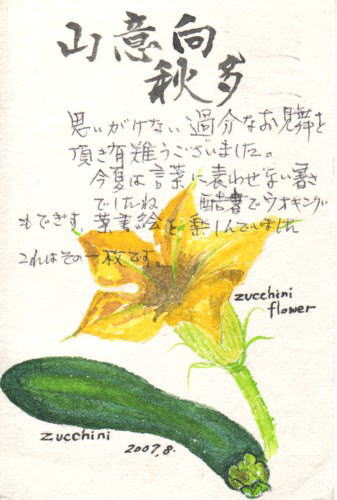 山意向
秋多
思いがけない過分なお見舞を
頂き有難うございました。
今夏は言葉に表わせない暑さ
でしたね。酷暑でウオーキング
もできず、葉書絵を楽しんでいました
これはその一枚です。
zucchini
flower
zucchini
2007.8.